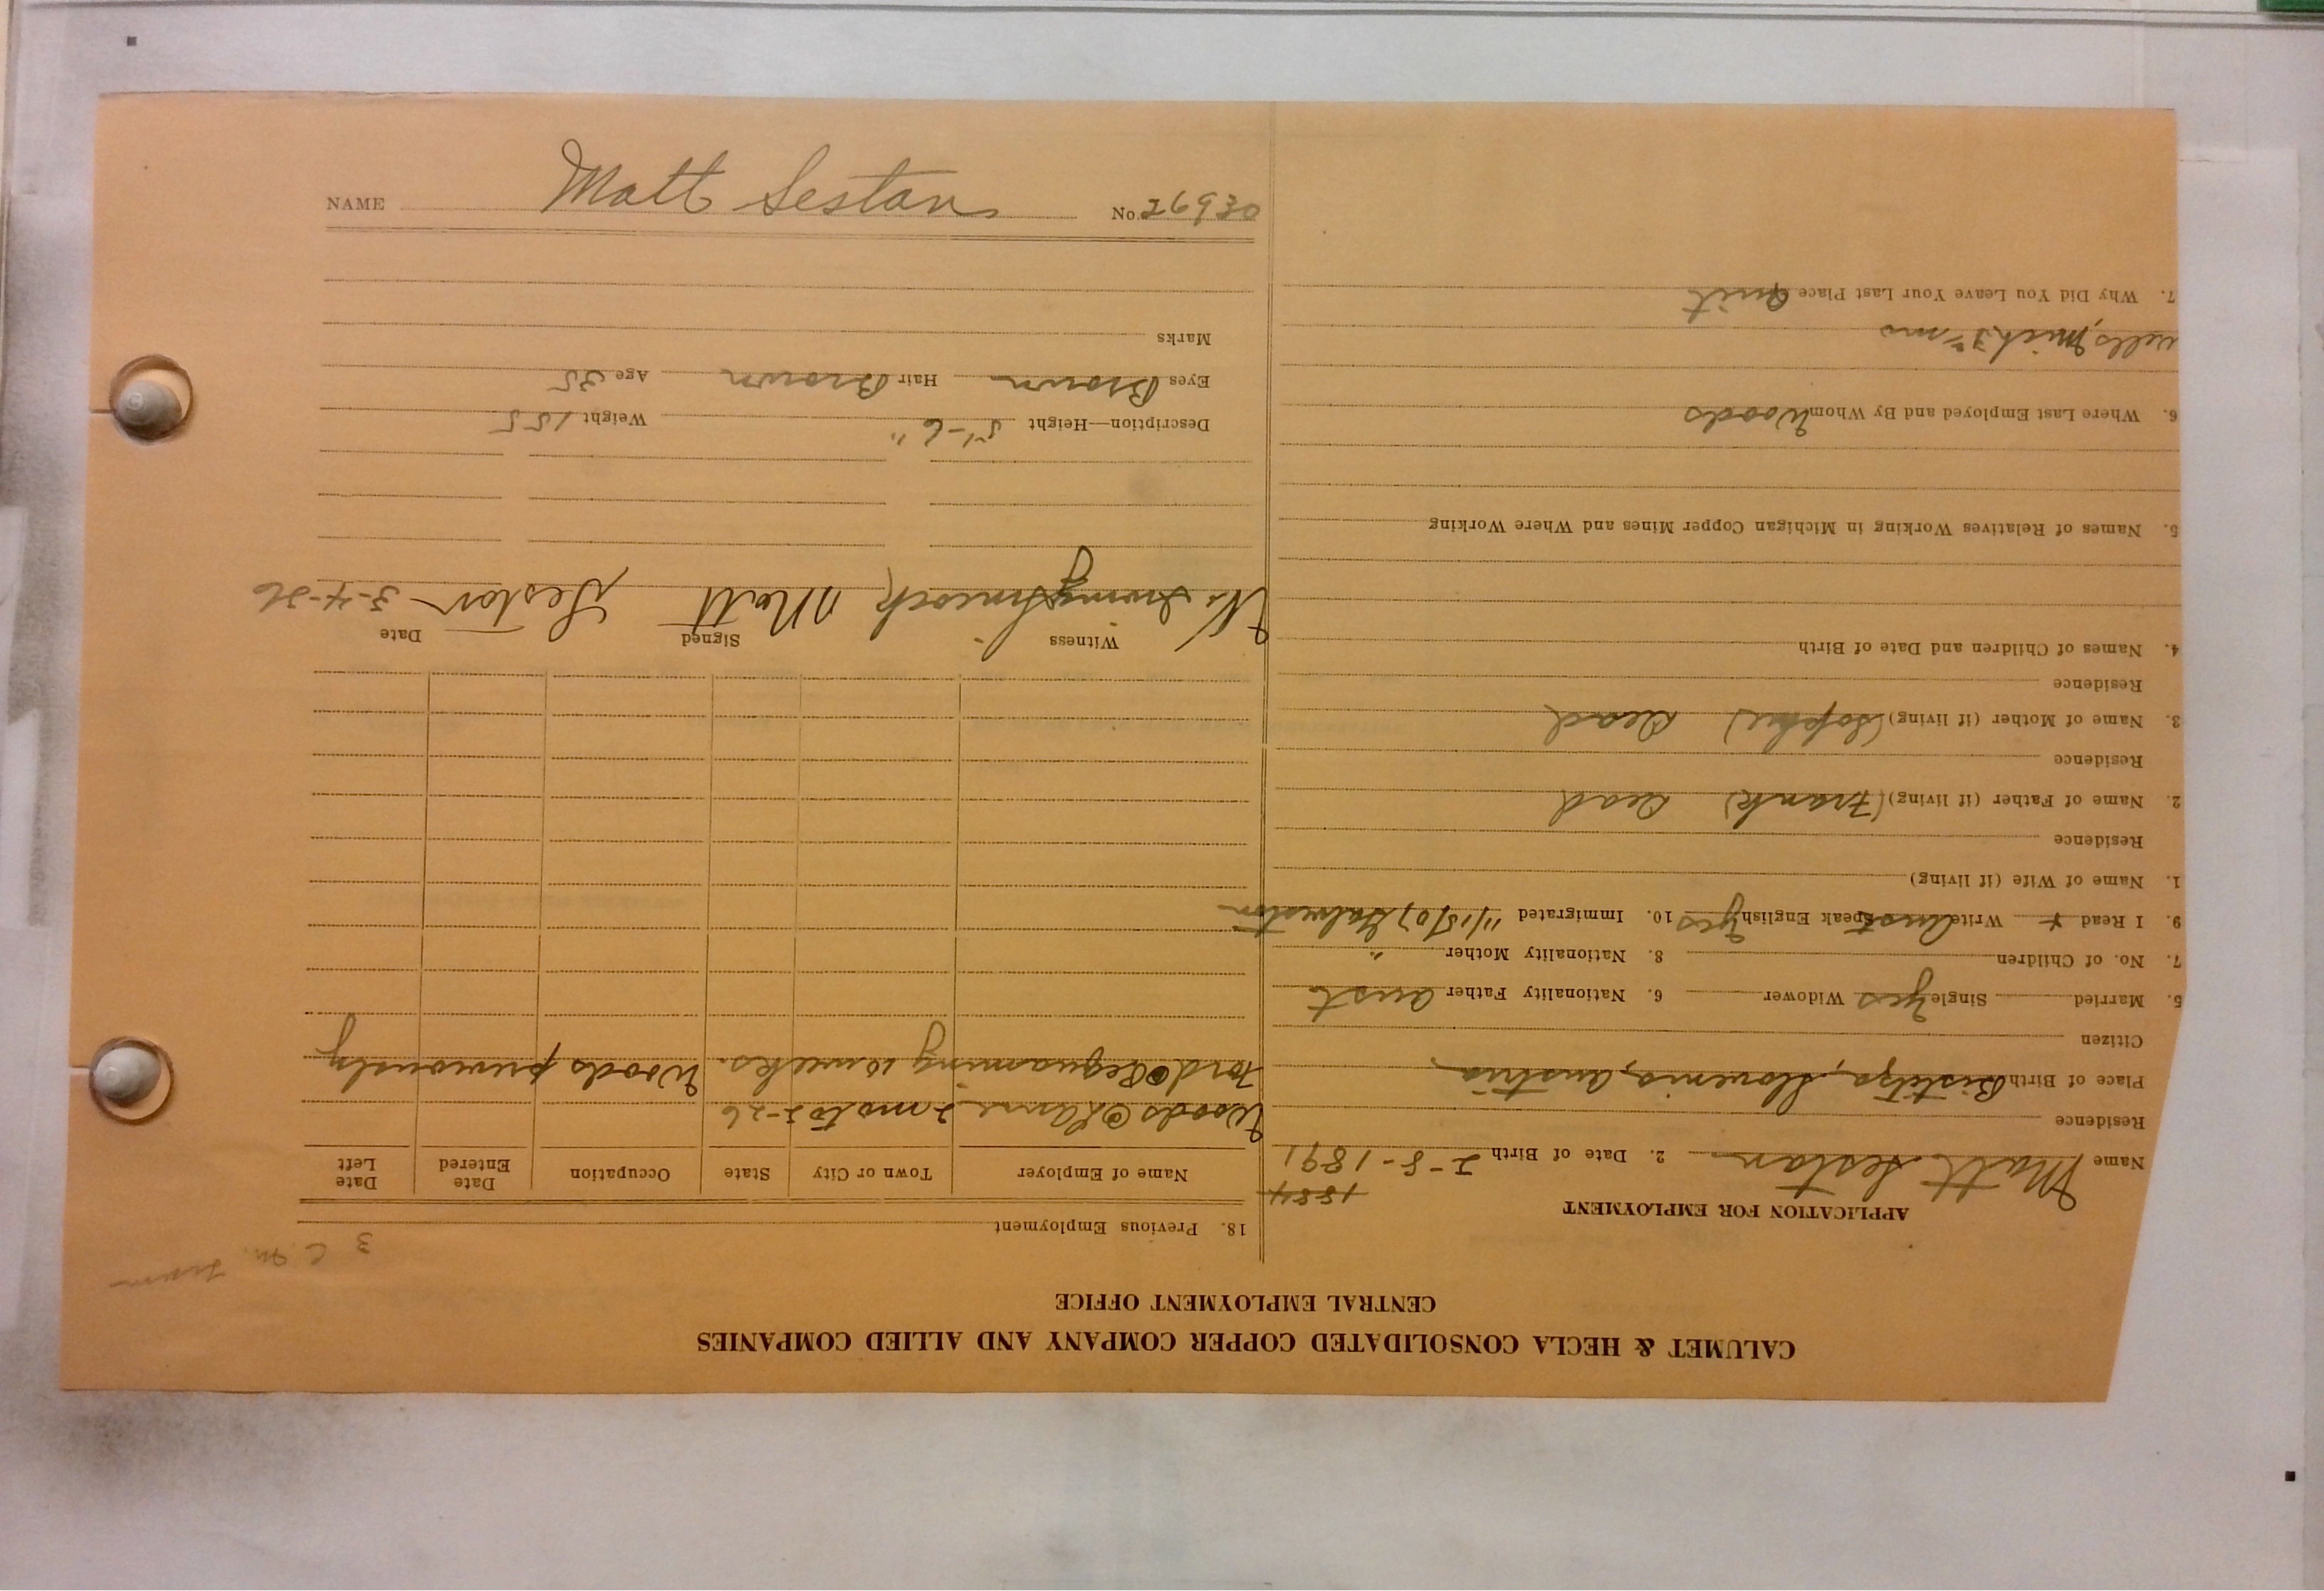 CALUMET & HECLA CONSOLIDATED COPPER COMPANY AND ALLIED COMPANIES
CENTRAL EMPLOYMENT OFFICE
APPLICATION FOR EMPLOYMENT
1884
Name Matt Sestan 2. Date of Birth 2-8-1891
Residence
Place of Birth Bistitza, Slovenia, Austria
Citizen
5. Married Single Yes Widower 6. Nationality Father Aust
7. No. of Children 8. Nationality Mother "
9. I Read + Write Aust Speak English Yes 10. Immigrated 11/15/07 Galveston
1. Name of Wife (if living)
Residence
2. Name of Father (if living) (Frank) Dead
Residence
3. Name of Mother (if living) (Sophie) Dead
Residence
4. Names of Children and Date of Birth
5. Names of Relatives Working in Michigan Copper Mines and Where Working
6. Where Last Employed and By Whom Woods
Wells, Mich. mos
7. Why Did You Leave Your Last Place Quit
3 C.
18. Previous Employment
Name of Employer Town or City State Occupation Date Entered Date Left
Woods @ 2 mo to 2-26
Ford @ Pequaming 10 weeks. Woods previously
Witness Signed Date
Matt Sestan 3-4-26
Description—Height 5'-6" Weight 155
Eyes Brown Hair Brown Age 35
Marks
NAME Matt Sestan No. 26930